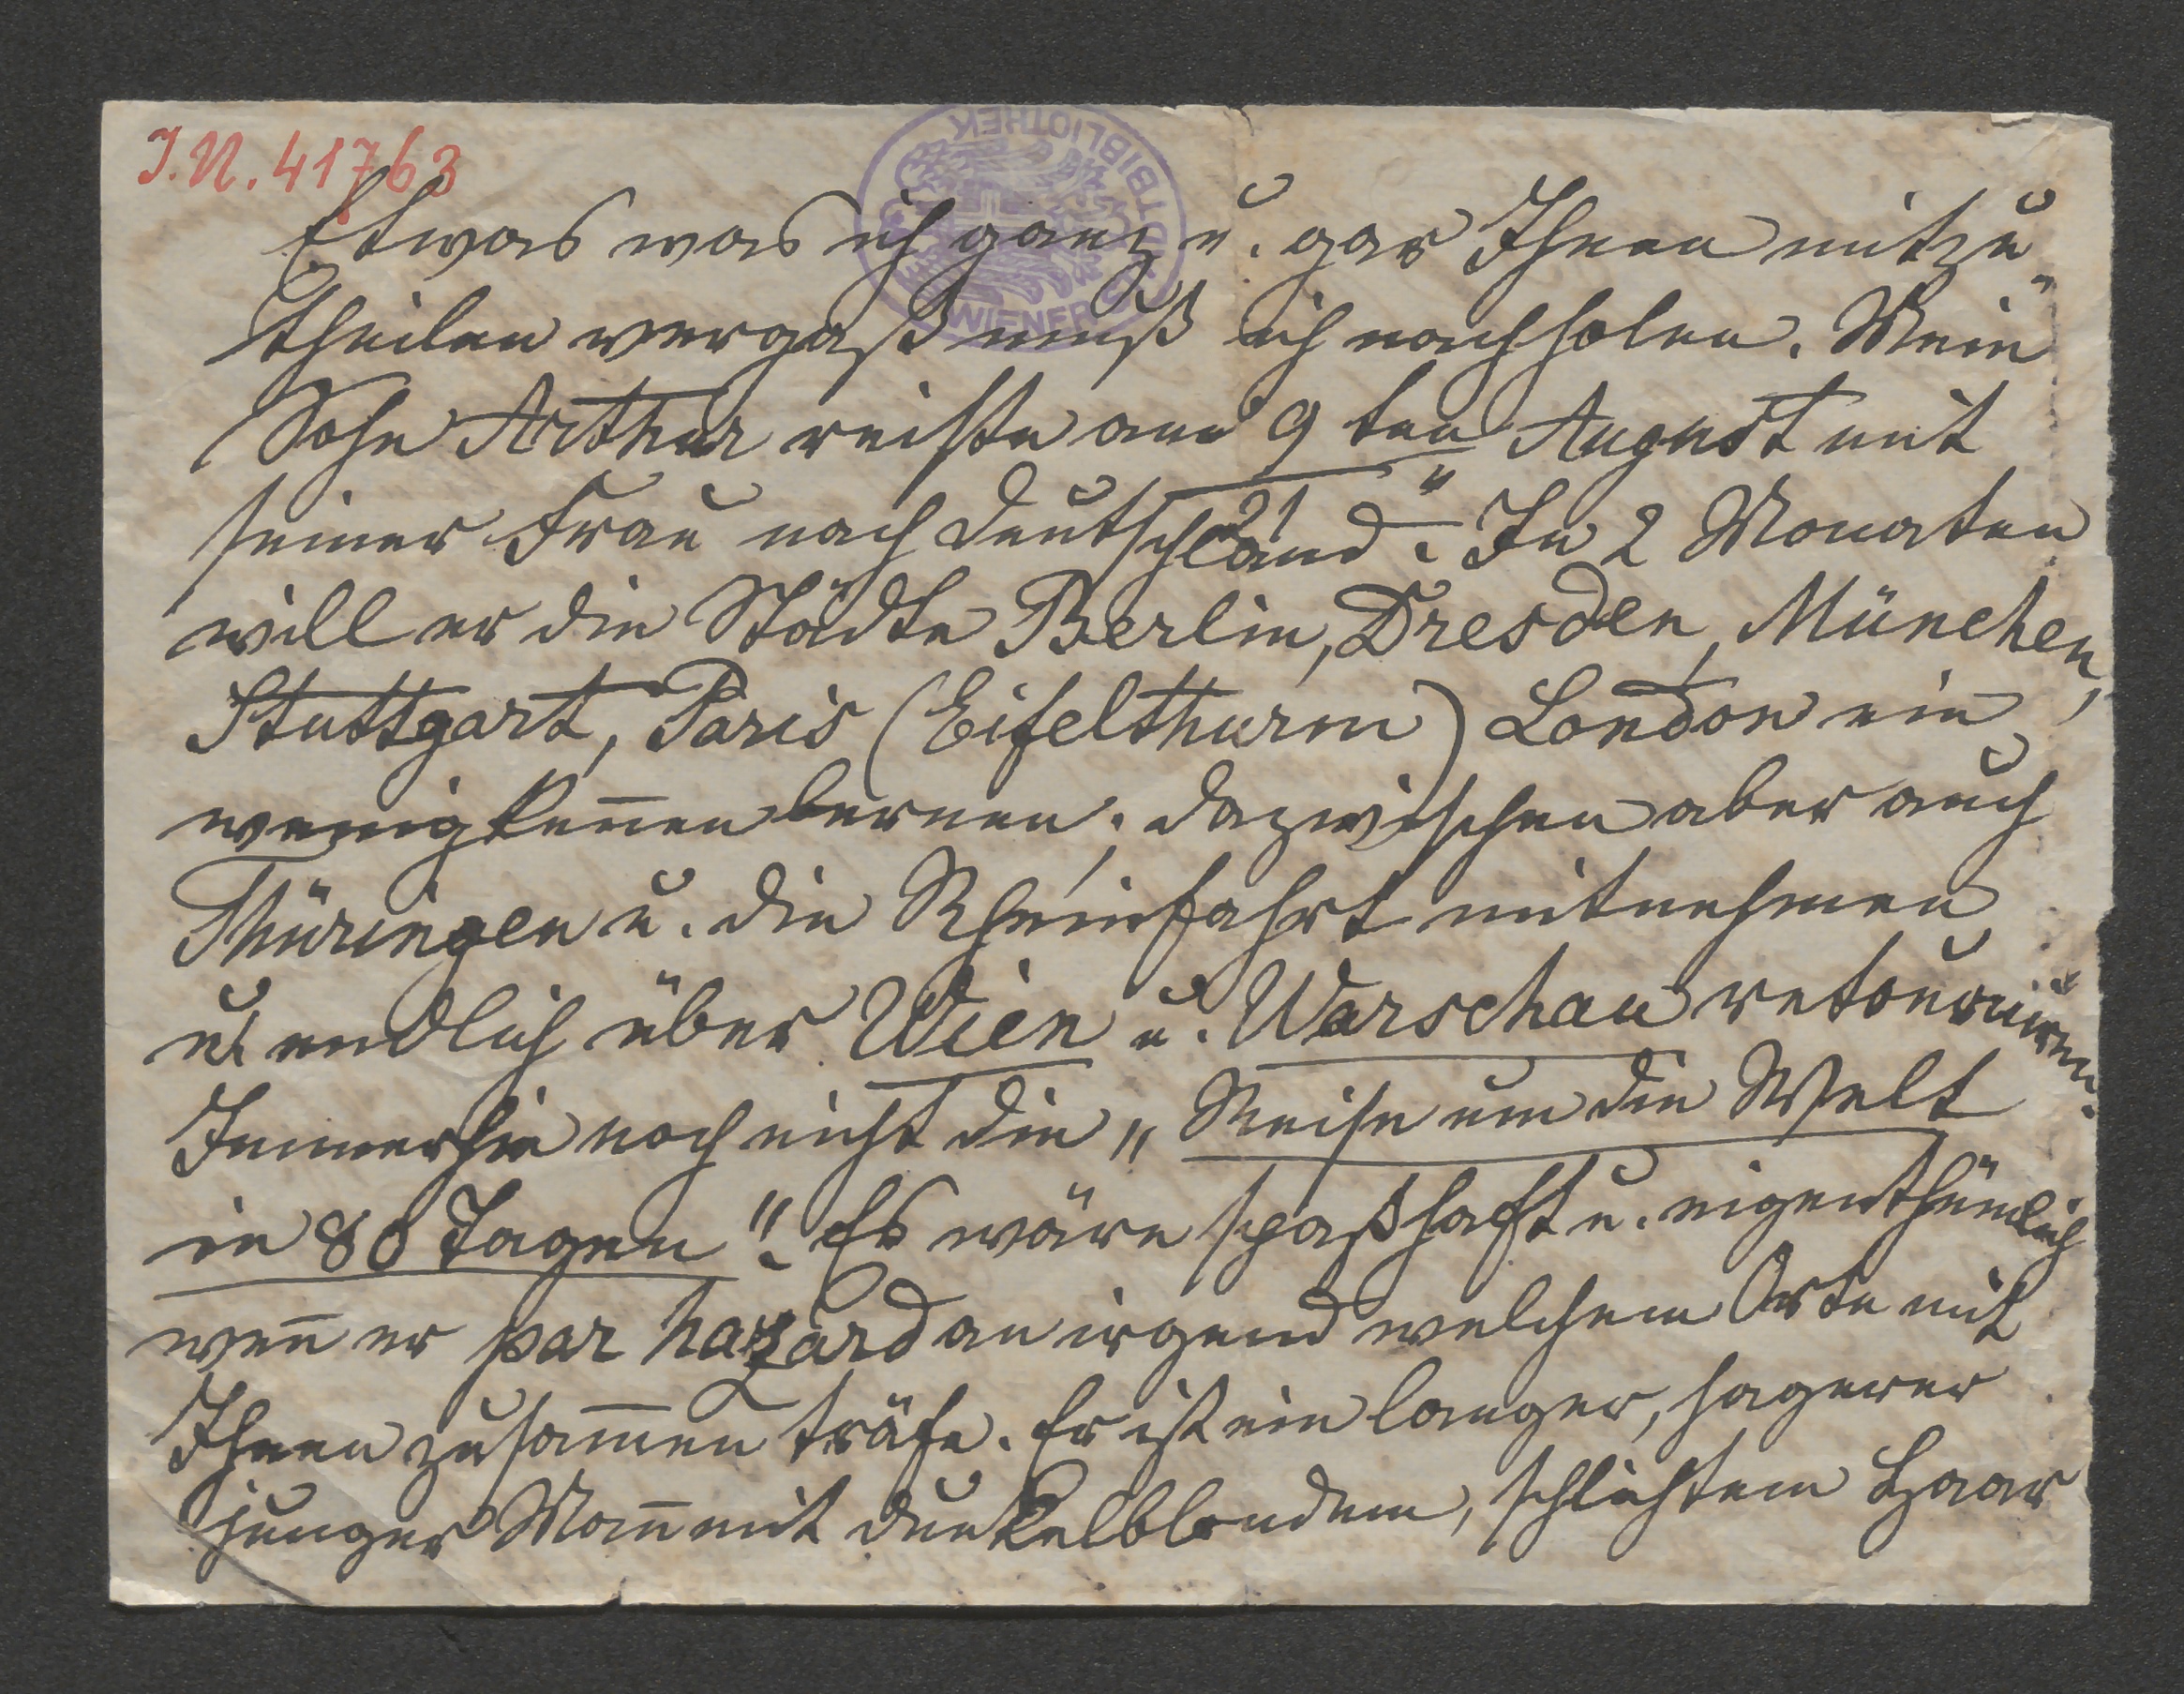 I.N. 41763
STADTBIBLIOTHEK
WIENER
Etwas was ich ganz u. gar Ihnen mitzu-
theilen vergaß muß ich nachholen. Mein
Sohn Arthur reiste am 9 ten August mit
21 "
seiner Frau nach Deutschland. In 2 Monaten
will er die Städte Berlin, Dresden, München,
Stuttgart, Paris (Eifelthurm) London ein
wenig kennen lernen; dazwischen aber auch
Thüringen u. die Rheinfahrt mitnehmen
u. endlich über Wien u. Warschau retourniren.
Immerhin noch nicht die „Reise um die Welt
in 80 Tagen". Es wäre spaßhaft u. eigenthümlich
wen̄ er par hazard an irgend welchem Orte mit
Ihnen zusam̄en träfe. Er ist ein langer, hagerer
junger Man̄ mit dunkelblondem, schlichtem Haar